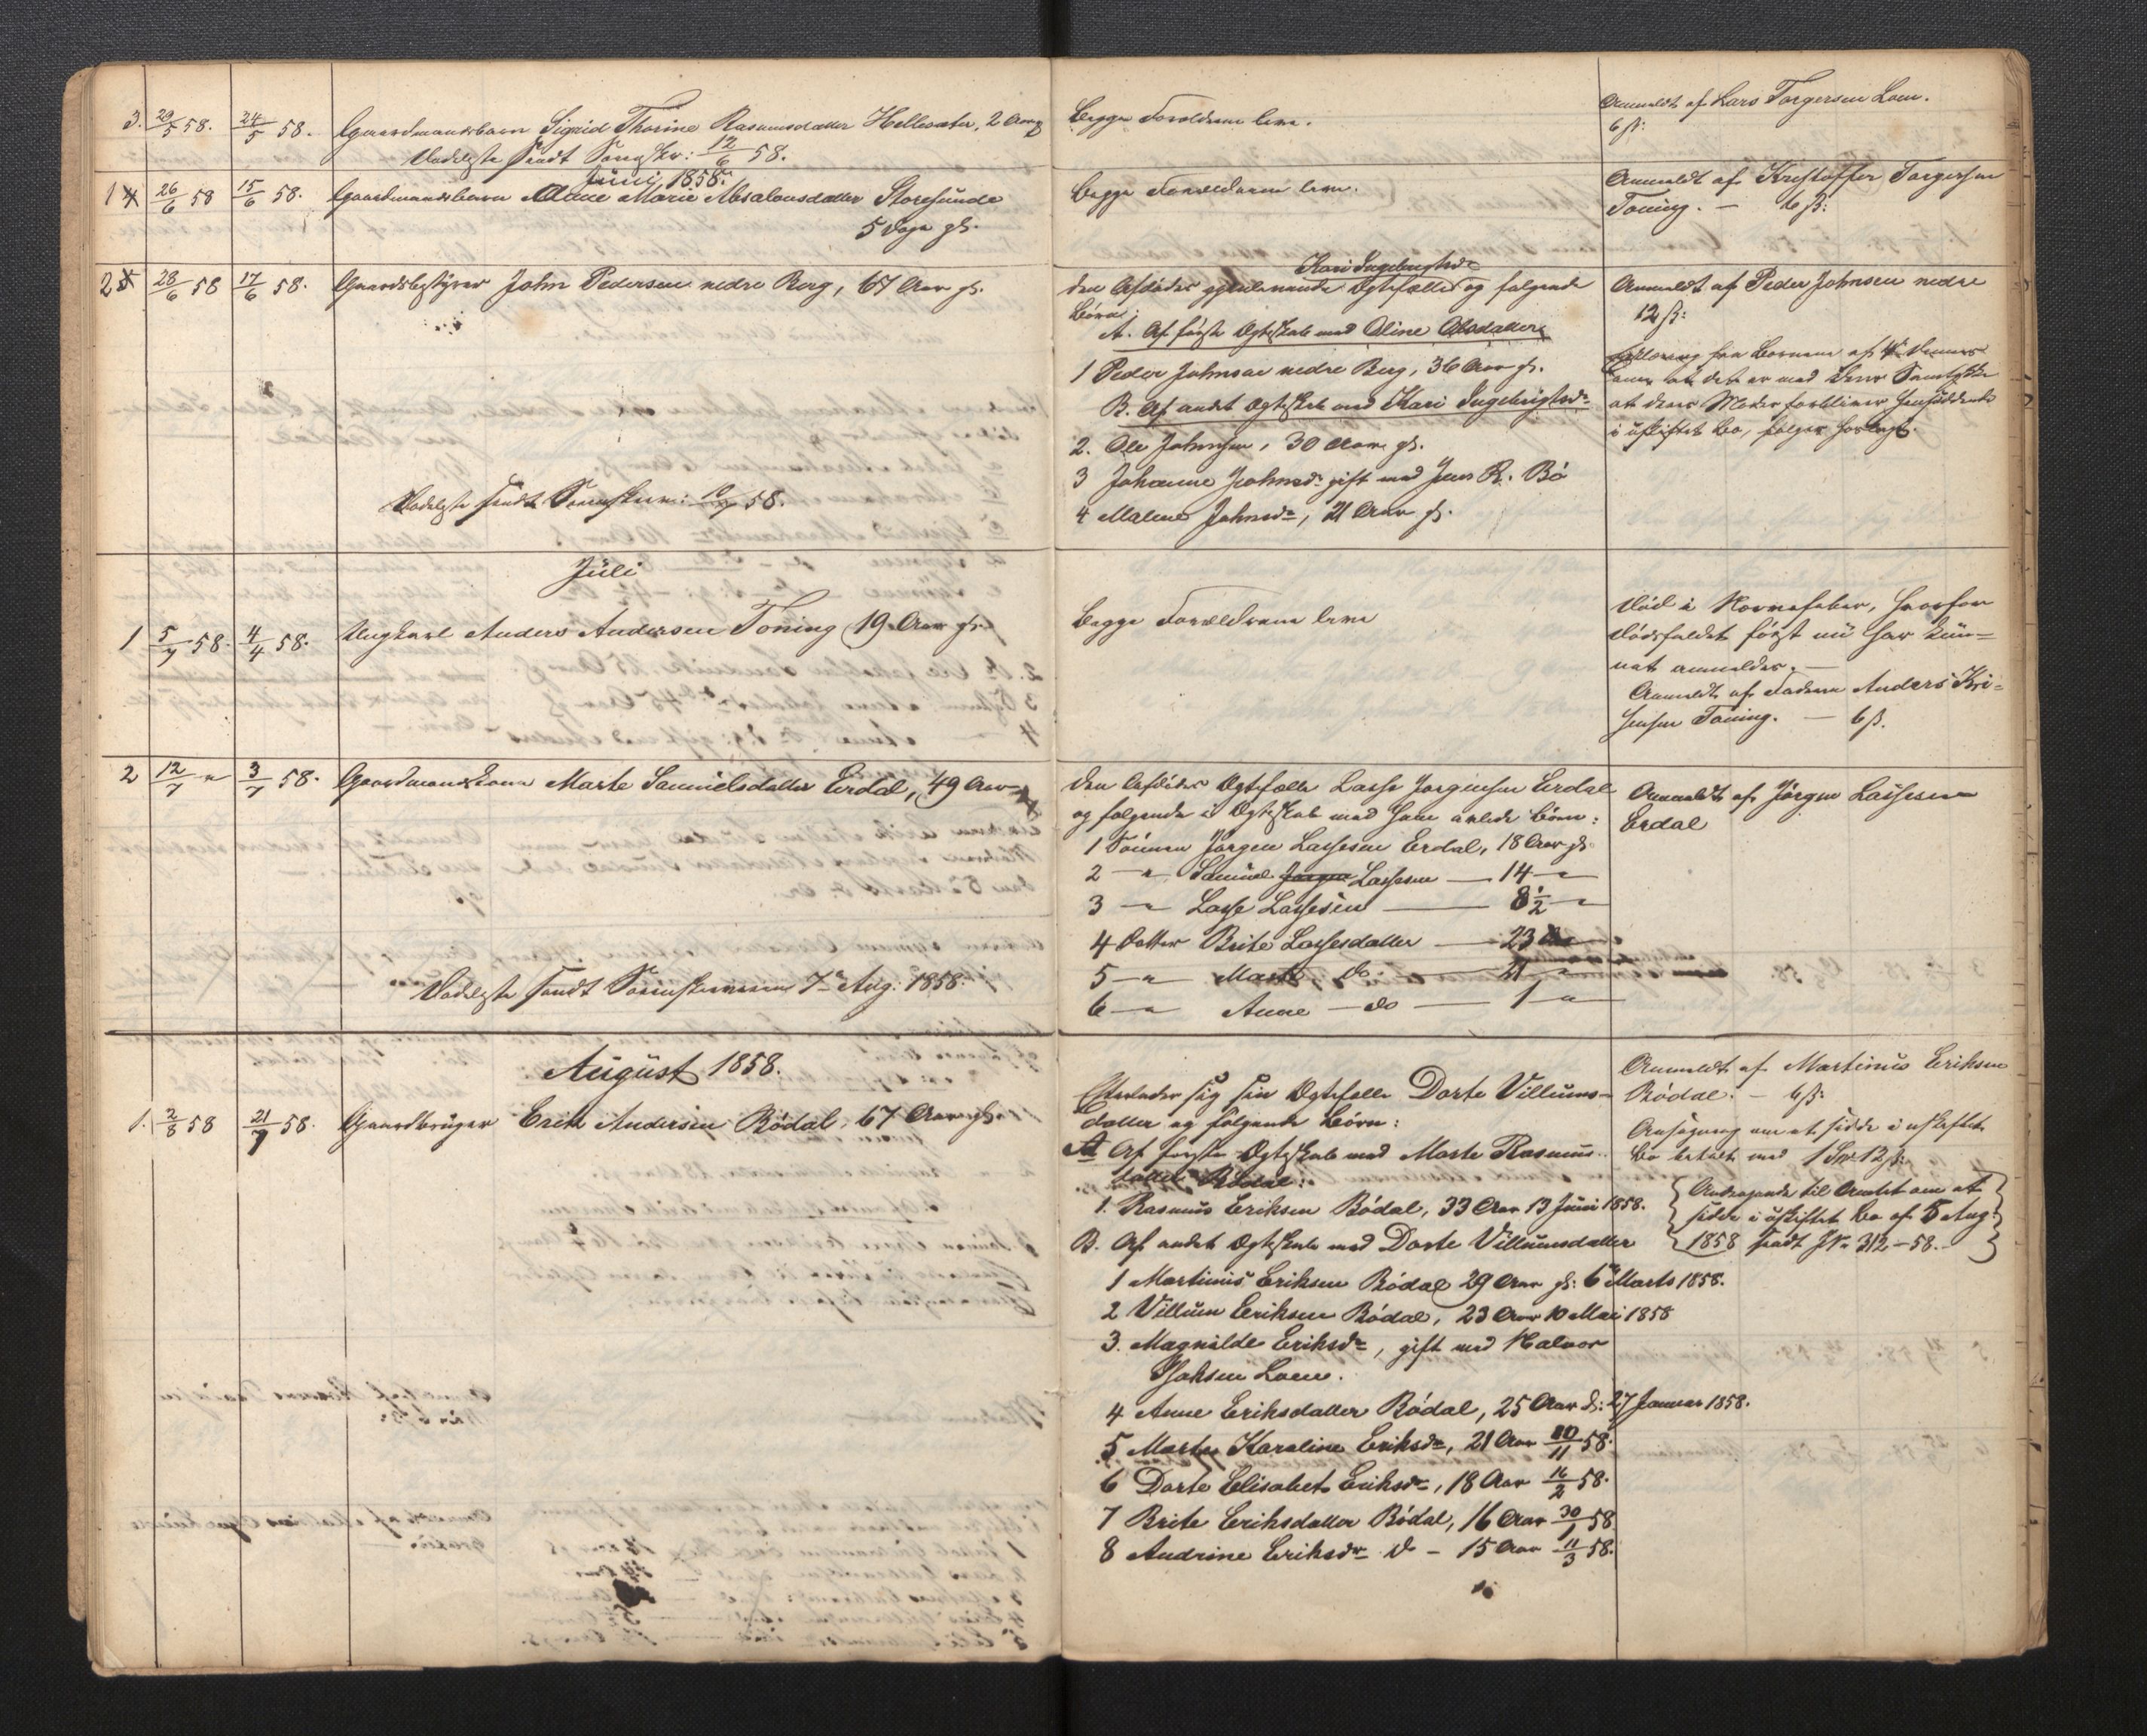 3. 29/5 58. 24/5 58. Gaardmandsbarn Sigrid Thorine Rasmusdatter Hellesæter, 2 Aar gl.
Begge Forældrene leve.
Anmeldt af Lars Torgersen Loen.
6 ß:
Dødsliste sendt Sorenskr: 12/6 58.
Juni 1858.
1 4 26/6 58 15/6 58. Gaardmandsbarn Anne Marie Absalonsdatter Storesunde
5 Dage gl.
Begge Forældrene leve.
Anmeldt af Kristoffer Torgersen
Toning. — 6 ß:
2 5 28/6 58 17/6 58. Gaardbestyrer John Pedersen nedre Berg, 67 Aar gl.
Kari Ingebrigtsdr
Den Afdødes gjenlevende Ægtefælle og følgende
Børn:
A. Af første Ægteskab med Oline Olsdatter
1 Peder Johnsen nedre Berg, 36 Aar gl.
B. Af andet Ægteskab med Kari Ingebrigtsdr
2. Ole Johnsen, 30 Aar gl.
3 Johanne Johnsdr gift med Jens R. Bö
4 Malene Johnsdr, 21 Aar gl.
Anmeldt af Peder Johnsen nedre
12 ß:
Erklæring fra Børnene af
at det er med deres Samtykke
at deres Moder forbliver hensiddende
i uskiftet Bo, følger
Dødsliste sendt Sorenskriver: 10/7 58.
Juli
1 5/7 58. 4/4 58. Ungkarl Anders Andersen Toning 19 Aar gl.
Begge Forældrene leve
Död i Novnefeber, hvorfor
Dödsfaldet först nu har kun=
net anmeldes. —
Anmeldt af Faderen Anders Kri=
stensen Toning. — 6 ß.
2 12/7 " 3/7 58. Gaardmandskone Marte Samuelsdatter Erdal, 49 Aar
Den Afdødes Ægtefælle Lasse Jørgensen Erdal
og følgende i Ægteskab med ham avlede Børn:
1 Sönnen Jörgen Lassesen Erdal, 18 Aar gl.
2 — " Samuel Lassesen — 14 — "
3 — " Lasse Lassesen — 8 1/2 — "
4 Datter Brite Lassesdatter — 23
5 — " Marte do. — 21 — "
6 — " Anne — do — 1 — "
Anmeldt af Jörgen Lassesen
Erdal
Dødsliste sendt Sorenskriveren 7de Aug. 1858.
August 1858.
1. 2/8 58 21/7 58. Gaardbruger Erik Andersen Bödal, 67 Aar gl.
Efterlader sig sin Ægtefælle Dorte Villums=
datter og følgende Børn:
A Af første Ægteskab med Marte Rasmus=
datter Bödal:
1. Rasmus Eriksen Bödal, 33 Aar 13 Juni 1858.
B. Af andet Ægteskab med Dorte Villumsdatter
1 Martinus Eriksen Bödal 29 Aar gl: 6te Marts 1858.
2 Villum Eriksen Bödal, 23 Aar 10 Mai 1858
3. Magnilde Eriksdr, gift med Halvor
Loen.
4 Anne Eriksdatter Bödal, 25 Aar d: 27 Januar 1858.
5 Marte Karoline Eriksdr, 21 Aar 10/11 58.
6 Dorte Elisabet Eriksdr, 18 Aar 16/2 58.
7 Brite Eriksdatter Bödal, 16 Aar 30/1 58
8 Andrine Eriksdr do — 15 Aar 11/3 58.
Anmeldt af Martinus Eriksen
Bödal. — 6 ß:
Ansøgning om at sidde i uskiftet
Bo betalt med 1 Spd 12 ß:
Andragende til Amtet om at
sidde i uskiftet Bo af 5 Aug.
1858 sendt J No 312 – 58. –